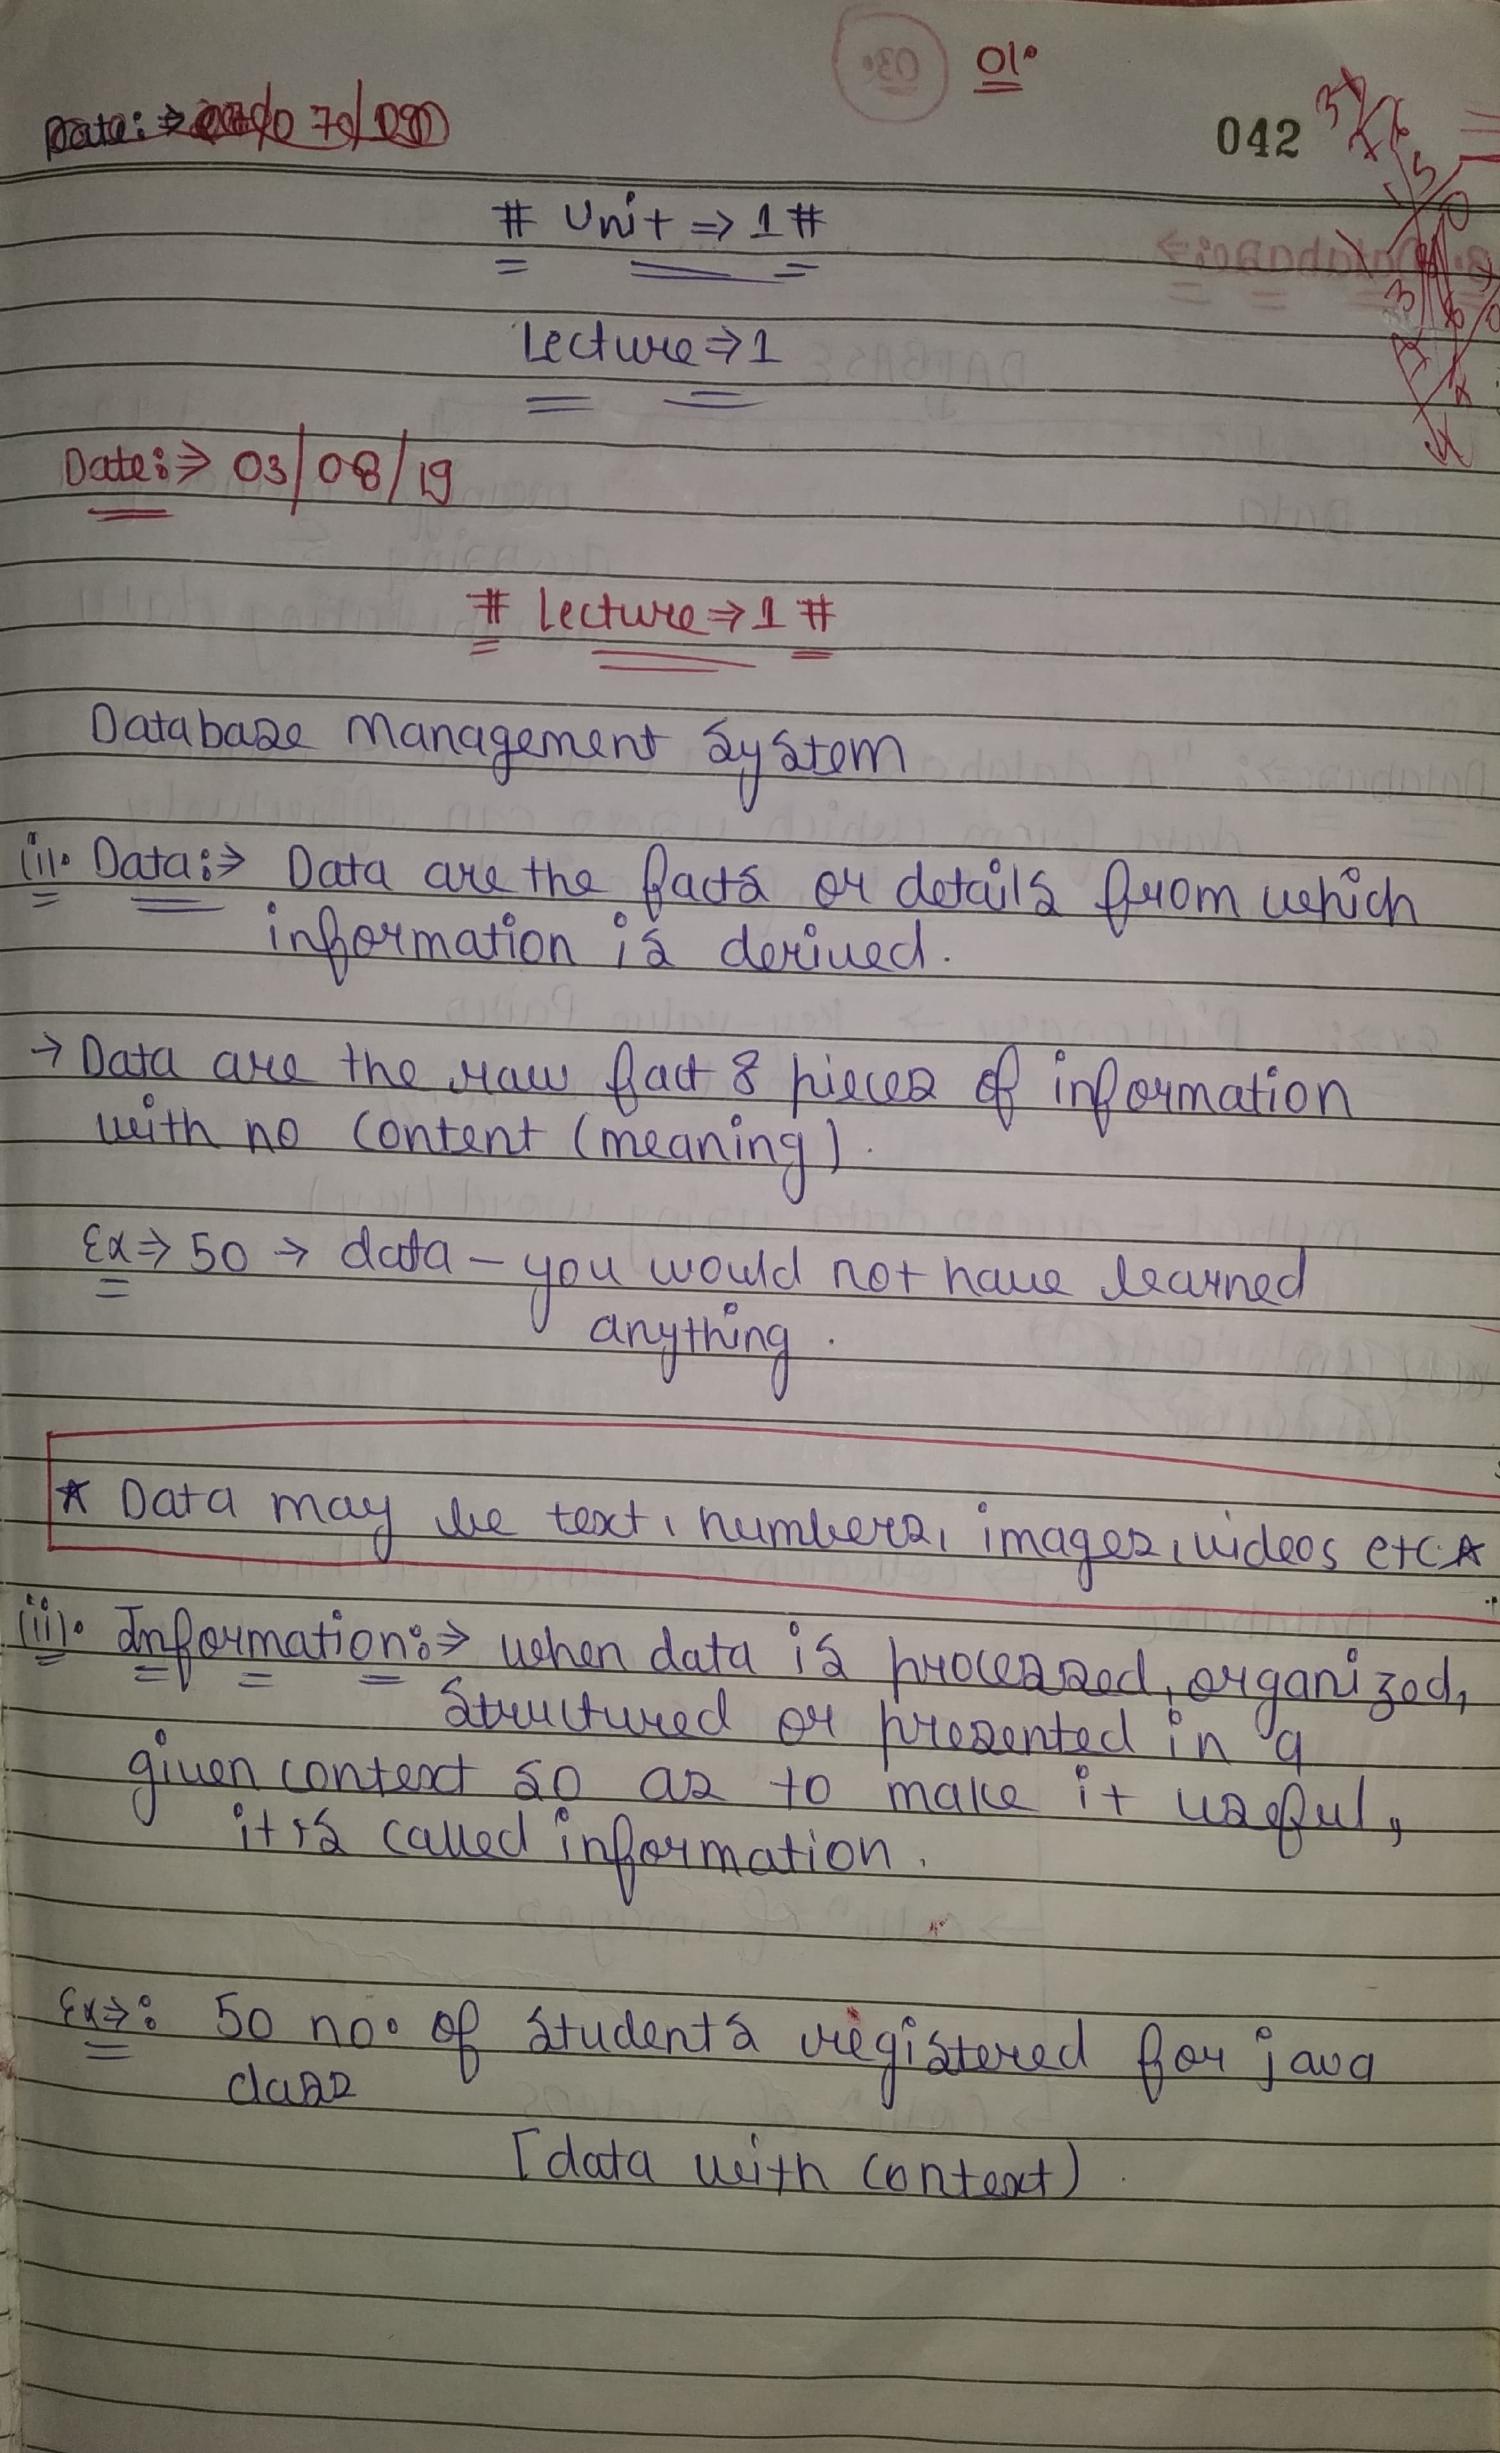 01.
042
# Unit ⇒ 1 #
Lecture ⇒ 1
Date:⇒ 03/08/19
# Lecture ⇒ 1 #
Database Management System
(i). Data:⇒ Data are the facts or details from which
information is derived.
→ Data are the raw fact & pieces of information
with no content (meaning).
Ex ⇒ 50 → data - you would not have learned
anything.
* Data may be text, numbers, images, videos etc. *
(ii). Information:⇒ when data is processed, organized,
structured or presented in a
given context so as to make it useful,
it is called information.
Ex ⇒: 50 no. of students registered for java
class
[data with context)